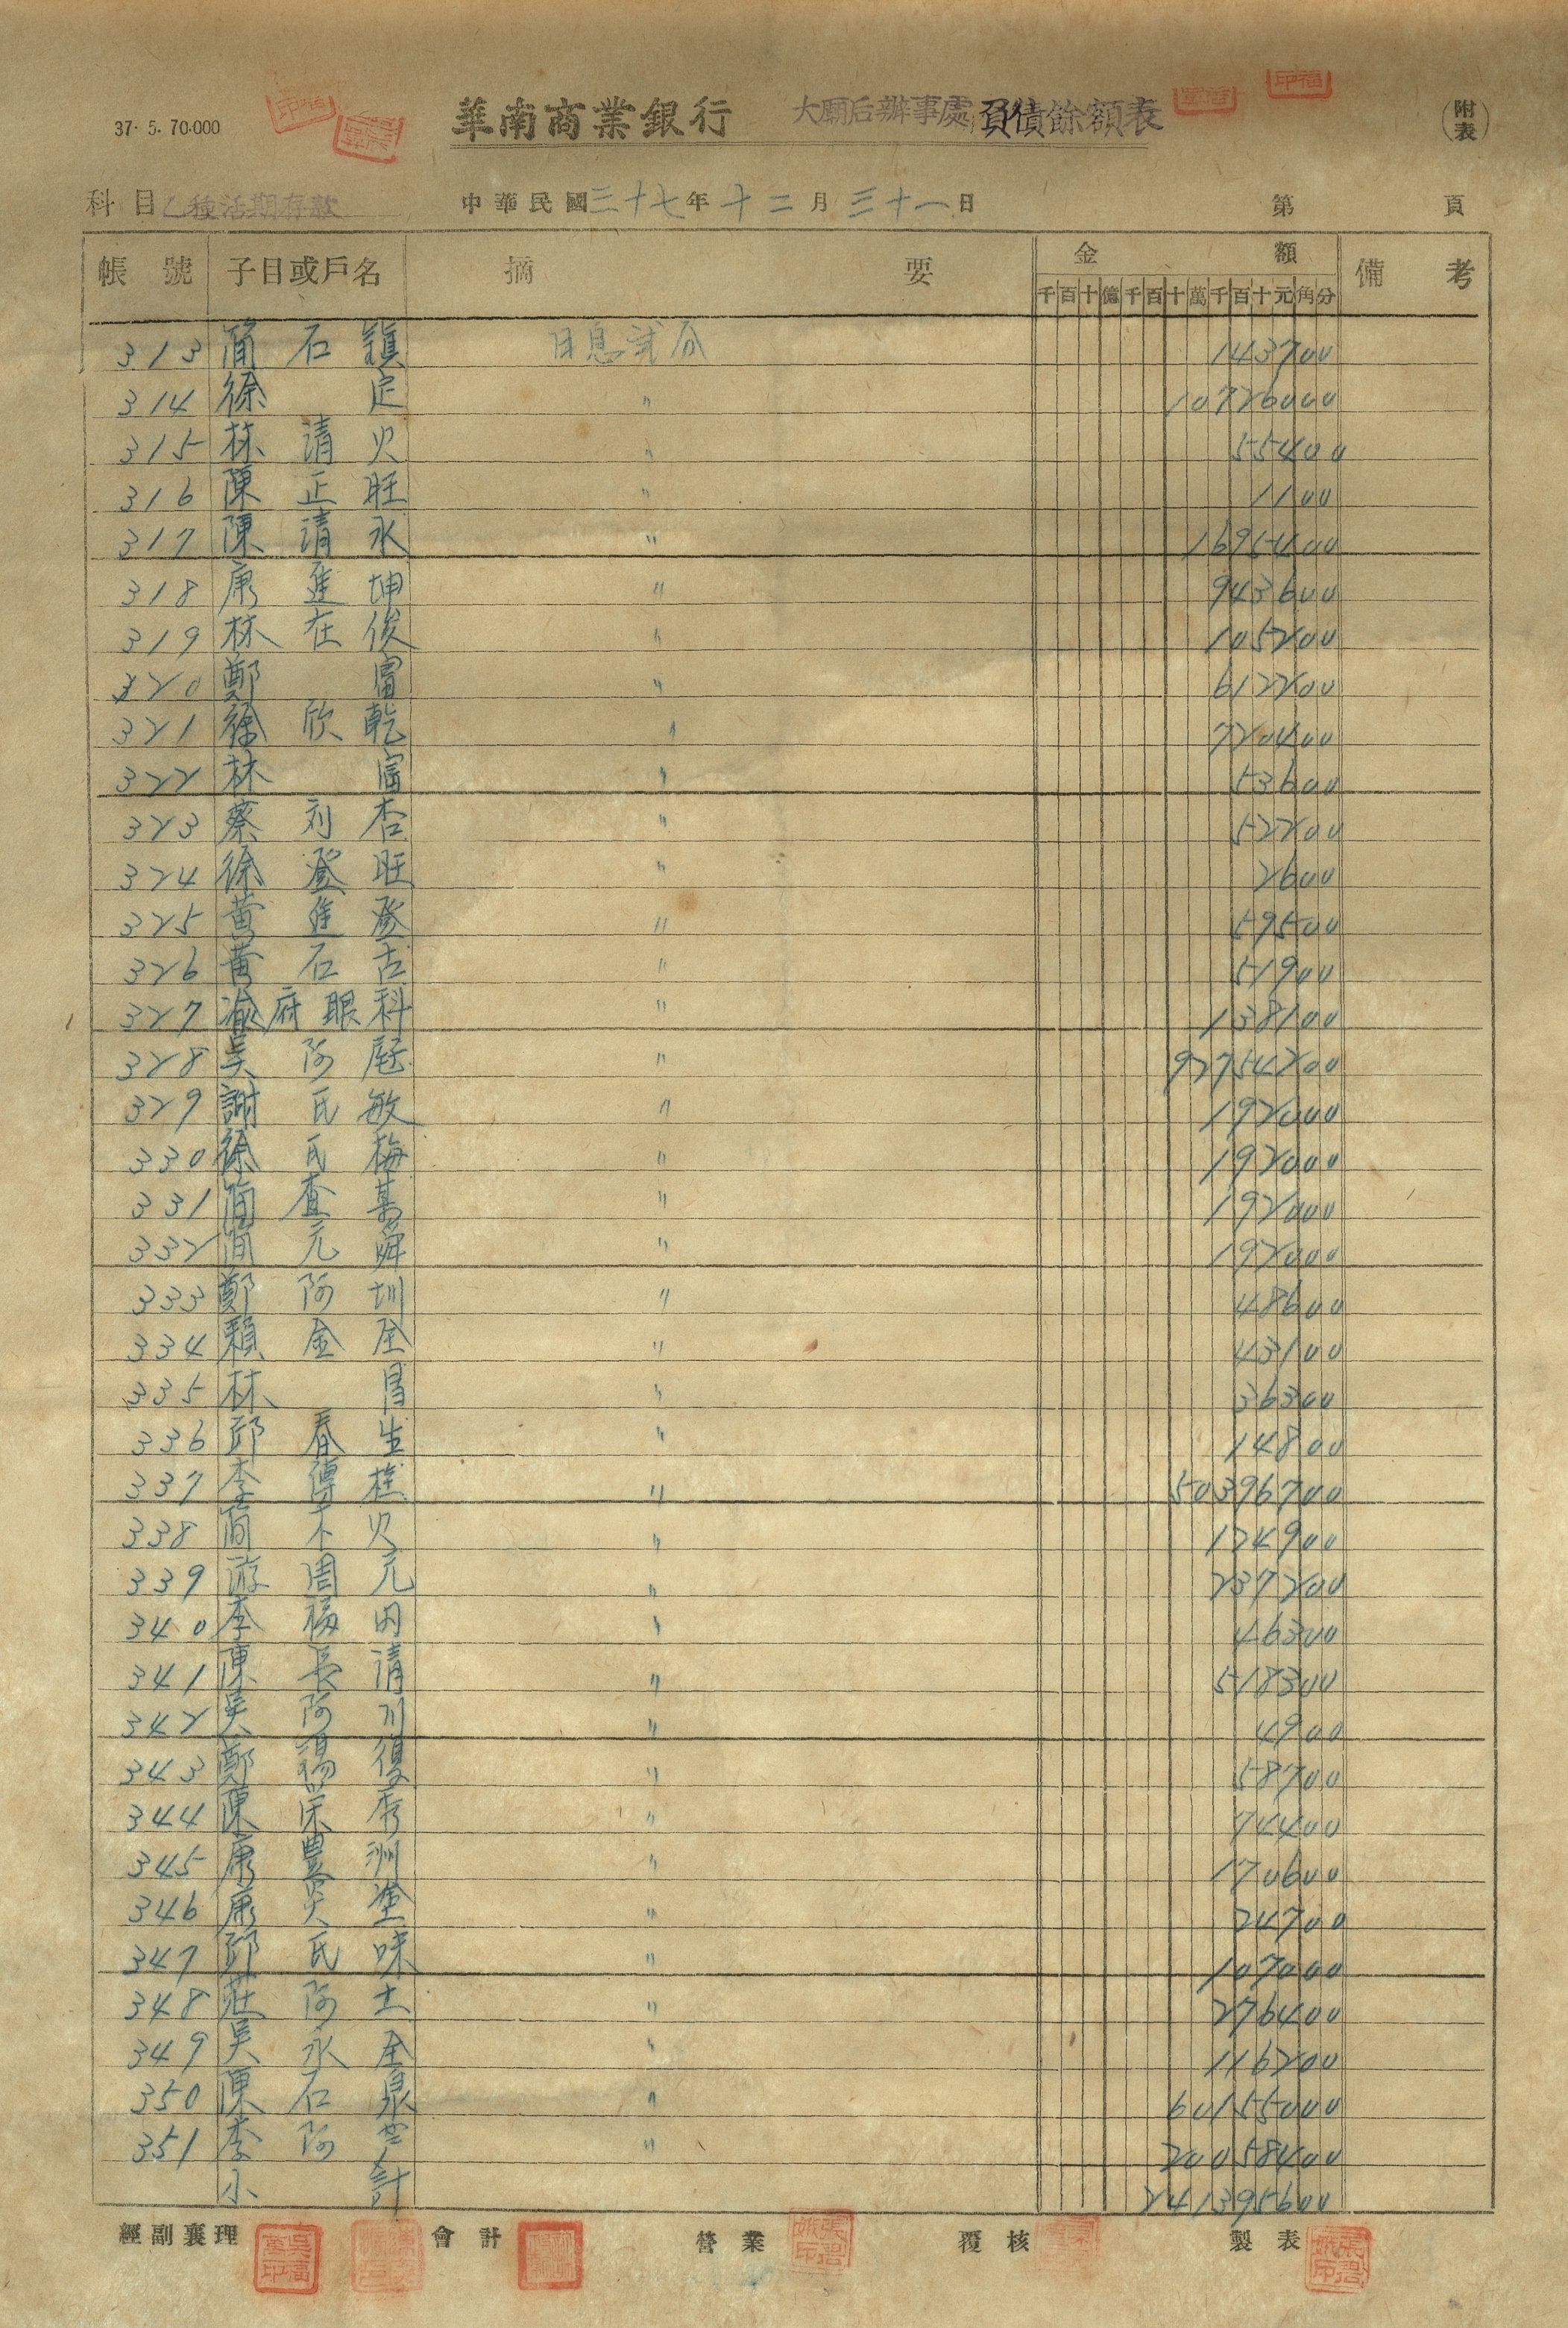 37. 5. 70.000
華南商業銀行 大廟后辦事處 負債餘額表 (附表)
科目 乙種活期存款 中華民國三十七年十二月三十一日 第 頁
帳號 子目或戶名 摘要 金額 備考
千百十億千百十萬千百十元角分
313 簡石 日息貳分 143700
314 徐定 〃 10726000
315 林清火 〃 55400
316 陳正旺 〃 1100
317 陳清永 〃 1695400
318 康進坤 〃 943600
319 林在俊 〃 105200
320 鄭富 〃 612200
321 徐欣乾 〃 720400
322 林富 〃 53600
323 蔡刘杏 〃 52200
324 徐登旺 〃 2600
325 黃進登 〃 59500
326 黃石古 〃 51900
327 府眼科 〃 138100
328 吳阿 〃 92754200
329 謝氏敏 〃 192000
330 徐氏梅 〃 192000
331 簡查 〃 192000
332 簡元舜 〃 192000
333 鄭阿圳 〃 48600
334 賴金全 〃 43100
335 林 〃 36300
336 邱春生 〃 14800
337 李傳 〃 50396700
338 簡木火 〃 124900
339 游周元 〃 237200
340 李福明 〃 46300
341 陳長清 〃 518300
342 吳阿川 〃 4900
343 鄭錫復 〃 58700
344 陳荣秀 〃 74400
345 康豊洲 〃 170600
346 康炎塗 〃 24700
347 邱氏味 〃 107000
348 莊阿土 〃 276400
349 吳永全 〃 116200
350 陳石泉 〃 60155000
351 李阿 〃 20058400
小計 241395600
經副襄理 會計 營業 覆核 製表